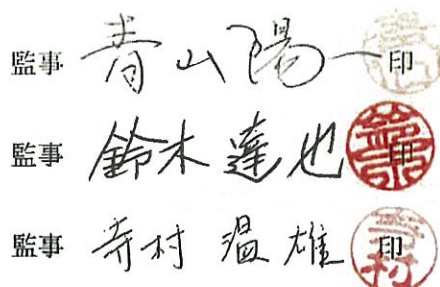 監事 青山陽一 印
監事 鈴木達也 印
監事 寺村温雄 印